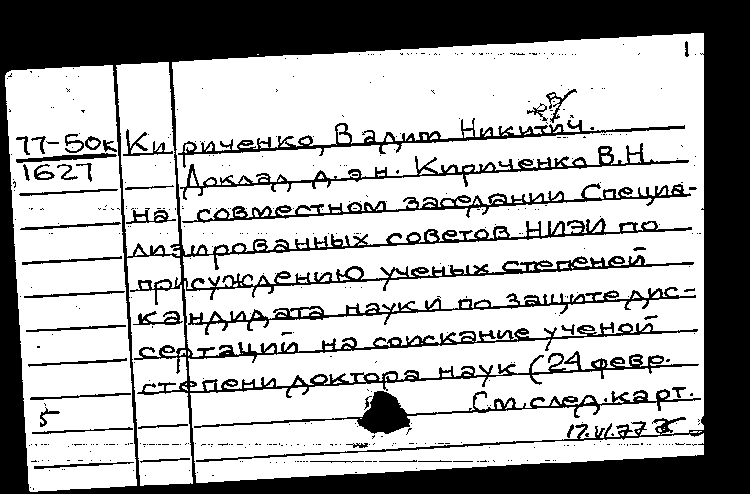 1
77-50к Кириченко, Вадим Никитич.
1627 Доклад д.э.н. Кириченко В.Н.
на совместном заседании Специа-
лизированных советов НИЭИ по
присуждению ученых степеней
кандидата науки по защите дис-
сертаций на соискание ученой
степени доктора наук (24 февр.
5 См.след.карт.
17.VI.77